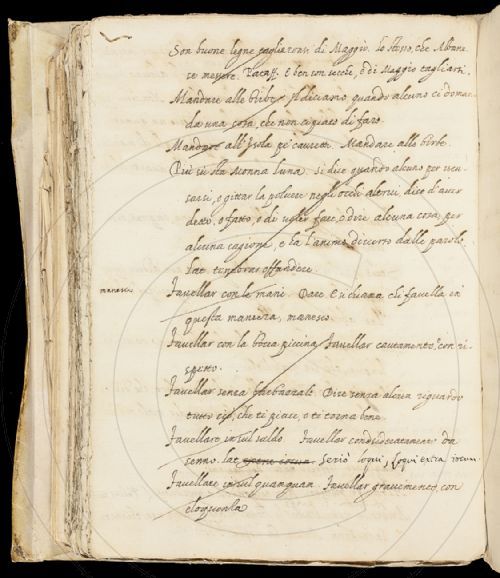 Son buone legne tagliaronsi di Maggio. lo stesso, che Albanese
messere. Pataff. E ben son secche, e di Maggio tagliarsi.
Mandare alle birbe. Il diciamo, quando alcuno ci doman
da una cosa, che non ci piace di fare.
Mandare all'Isola pe' capretti. Mandare alle birbe.
Più su sta monna luna. si dice quando alcuno per iscu-
sarsi, e gittar la polvere negli occhi altrui, dice d'aver
detto, o fatto, o di voler fare, o dire alcuna cosa per
alcuna cagione, e ha l'animo diverso dalle parole.
lat.
manesco.
Favellar con le mani. Dare. E si chiama chi favella in
questa maniera, manesco.
Favellar con la bocca piccina. Favellar cautamente, con ri-
spetto.
Favellar senza barbazzale. Dire senza alcun riguardo
tutto ciò, che ti piace, e ti torna bene.
Favellare in sul saldo. Favellar consideratamente da
senno. lat. serio loqui, loqui extra iocum.
Favellare in sul quamquam. Favellar gravemente, con
eloquenza